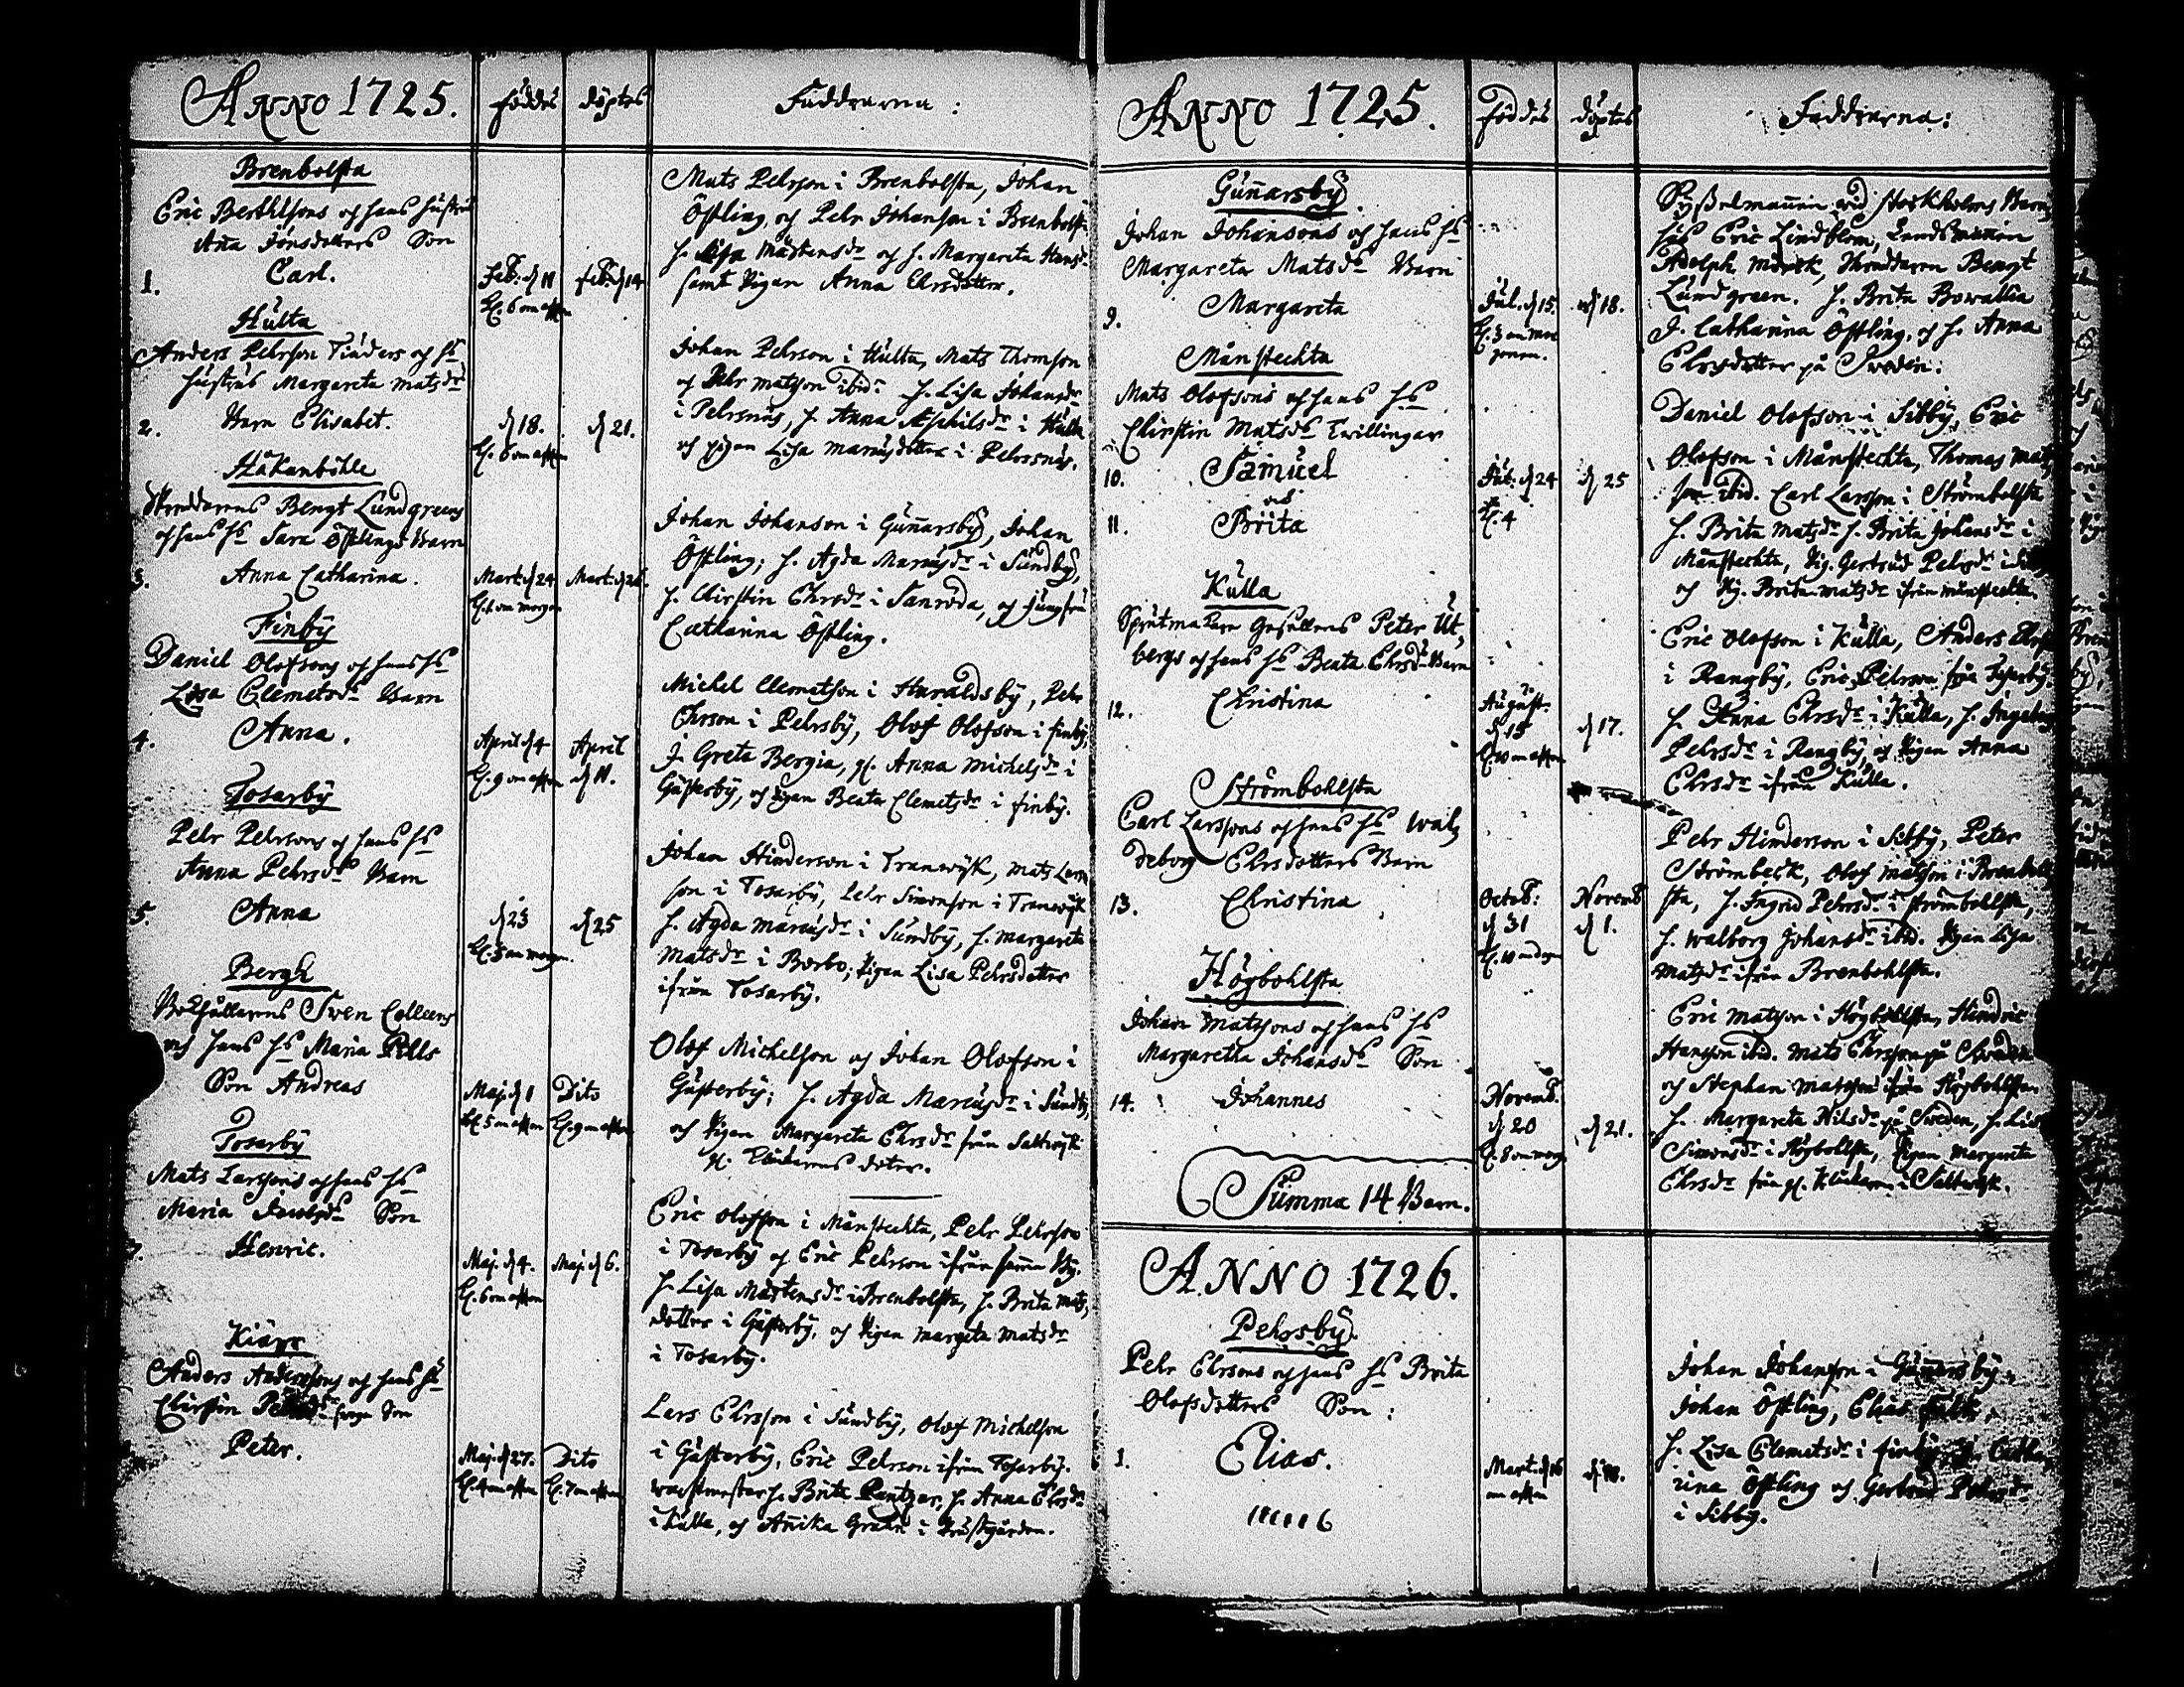 ANNO 1725.
föddes
döptes
Faddrarna:
Brenbolsta
Eric Berthlsons och hans hustrus
Anna Jönsdotters Son
1. Carl.
Feb: d 11
Kl. 6 om afton
Feb: d 14
Mats Pehrson i Brenbolsta, Johan
Östling, och Pehr Johanson i Brenbolsta
h. Lisa Mårtensdr och h. Margareta Hansdr
samt Pigan Anna Ehrsdotter.
Hulta
Anders Pehrson och hs
hustrus Margareta Matsdr
2. Barn Elisabet.
d 18.
Kl. 6 om afton
d 21.
Johan Pehrson i Hulta, Mats Thomson
och Pehr Matson ibid: h. Lisa Johansdr
i Pehrsnäs, h. Anna Eskhilsdr i Hulta
och pigan Lisa Marcusdotter i Pehrsnäs.
Håkanböhle
Skreddarens Bengt Lundgreens
och hans hs Sara Östlings Barn
3. Anna Catharina.
Mart: d 24
Kl. 1 om morgon
Mart: d 26.
Johan Johanson i Gunnarsby, Johan
Östling; h. Agda Marcusdr i Sundby,
h. Chirstin Ehrsdr i Sanröda, och jungfru
Catharina Östling.
Finby
Daniel Olofsons och hans hs
Lisa Clemetsdr Barn
4. Anna.
April d 4
Kl. 9 om afton
April
d 11.
Michel Clemetson i Haraldsby, Pehr
Ehrson i Pehrsby, Olof Olofson i Finby,
J. Greta Bergia, gl. Anna Michelsdr i
Gästerby, och Pigan Beata Clemetsdr i Finby.
Tosarby
Pehr Pehrsons och hans hs
Anna Pehrsdr Barn
5. Anna
d 23
Kl. 3 om morgon.
d 25
Johan Hinderson i Tranwijk, Mats Lars
son i Tosarby, Pehr Simonson i Tranwijk
h. Agda Marcusdr i Sundby, h. Margareta
Matsdr i Borbo; Pigan Lisa Pehrsdotter
ifrån Tosarby.
Bergh
Båtzhållarens Swen Colleens
och hans hs Maria Pells
Son Andreas
Maj. d 1
Kl. 5 om afton
Dito
Kl. 9 om afton
Olof Michelson och Johan Olofson i
Gästerby; h. Agda Marcusdr i Sundby,
och Pigan Margareta Ehrsdr från Saltwijk
gl. Klåckarens doter.
Tosarby
Mats Larssons och hans hs
Maria Jacobsdr Son
7. Henric.
Maj. d 4.
Kl. 6 om afton
Maj. d 6.
Eric Olofson i Månstechta, Pehr Pehrson
i Tosarby och Eric Pehrson ifrån samma By.
h. Lisa Mårtensdr i Brenbolsta, h. Brita Mats
dotter i Gästerby, och Pigan Margeta Matsdr
i Tosarby.
Kiärr
Anders Andersons och hans hs
Chirstin Son
Peter.
Maj. d 27.
Kl. 4 om afton
Dito
Kl. 7 om afton
Lars Ehrsson i Sundby, Olof Michelson
i Gästerby, Eric Pehrson ifrån Tosarby.
h. Brita Pantzar, h. Anna Ehrsdr
i Kulla, och Annika i Prästgården.
ANNO 1725.
föddes
döptes
Faddrarna:
Gunnarsby
Johan Johansons och hans hs
Margareta Matsdr Barn
9. Margareta
Jul. d 15.
Kl. 3 om mor
gonen.
d 18.
wid Stockholms
Eric Lindblom, Lendsmannen
Adolph Mörck, Skreddaren Bengt
Lundgreen. h. Brita Bowallia
J. Catharina Östling, och h. Anna
Ehrsdotter på Sweden:
Månstechta
Mats Olofsons och hans hs
Chirstin Matsdr Twillingar
10. Samuel
och
11. Brita
Jul: d 24
Kl. 4
d 25
Daniel Olofson i Sibby, Eric
Olofson i Månstechta, Thomas Mats
son ibid. Carl Larsson i Strömbolsta
h. Brita Matsdr h. Brita Johansdr i
Månstechta, Pig. Gertrud Pehrsdr i
och Pig. Brita Matsdr ifrån Månstechta.
Kulla
Gesällens Peter Ut,
bergs och hans hs Beata Ehrsdr Barn
12. Christina
August:
d 15
Kl. 10 om afton
d 17.
Eric Olofson i Kulla, Anders
i Rangby, Eric Pehrson från Tosarby,
h. Anna Ehrsdr i Kulla, h. Ingeborg
Pehrsdr i Rangby och Pigan Anna
Ehrsdr ifrån Kulla.
Strömbohlsta
Carl Larssons och hans hs Wal,
debor Ehrsdotters Barn
13. Christina
Octob:
d 31
Kl. 10 om dagen
Novemb
d 1.
Pehr Hinderson i Sibby, Peter
Strömbeck, Olof Matson i Brenbohl,
sta, h. Ingrid Pehrsdr i Strömbollsta,
h. Walborg Johansdr ibid. Pigan Lisa
Matsdr ifrån Brenbohlsta.
Högbohlsta
Johan Matsons och hans hs
Margaretha Johansdr Son
14. Johannes
Novemb.
d 20
Kl. 8 om morg.
d 21.
Eric Matson i Högbohlsta, Hindric
Hanson ibid. Mats Ehrsson på Sweden
och Stephan Matsson ifrån Högbohlsta.
h. Margareta Nilsdr på Sweden, h. Lisa
Simonsdr i Högbollsta, Pigan Margareta
Ehrsdr från gl. Klåckaren i Saltwijk.
Summa 14 Barn.
ANNO 1726.
Pehrsby.
Pehr Ehrsons och hans hs Brita
Olofsdotters Son:
1. Elias.
Mart. d 16
om afton
d 18.
Johan Johanson i Gunnarsby,
Johan Östling, Elias
h. Lisa Clemetsdr i Finby, J. Catha,
rina Östling och Gertrud Pehrsdr
i Sibby.